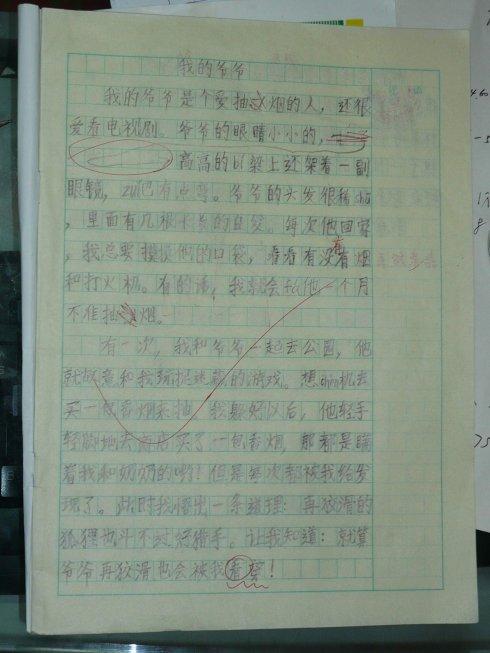 我的爷爷
我的爷爷是个爱抽烟的人，还很
爱看电视剧。爷爷的眼睛小小的，
高高的bi梁上还架着一副
眼镜，zui巴有点弯。爷爷的头发很稀
，里面有几根不长的白发。每次他回家
，我总要摸摸他的口袋，看看有没有烟
和打火机。有的话，我就会fa他一个月
不准抽烟。
有一次，我和爷爷一起去公园，他
就故意和我玩捉迷藏的游戏。想chèn机去
买一包香烟来抽，我躲好以后，他轻手
轻脚地去商店买了一包香烟，那都是瞒
着我和奶奶的哟！但是每次都被我给发
现了。此时我悟出一条道理：再狡滑的
狐狸也斗不过好猎手。让我知道：就算
爷爷再狡滑也会被我看穿！